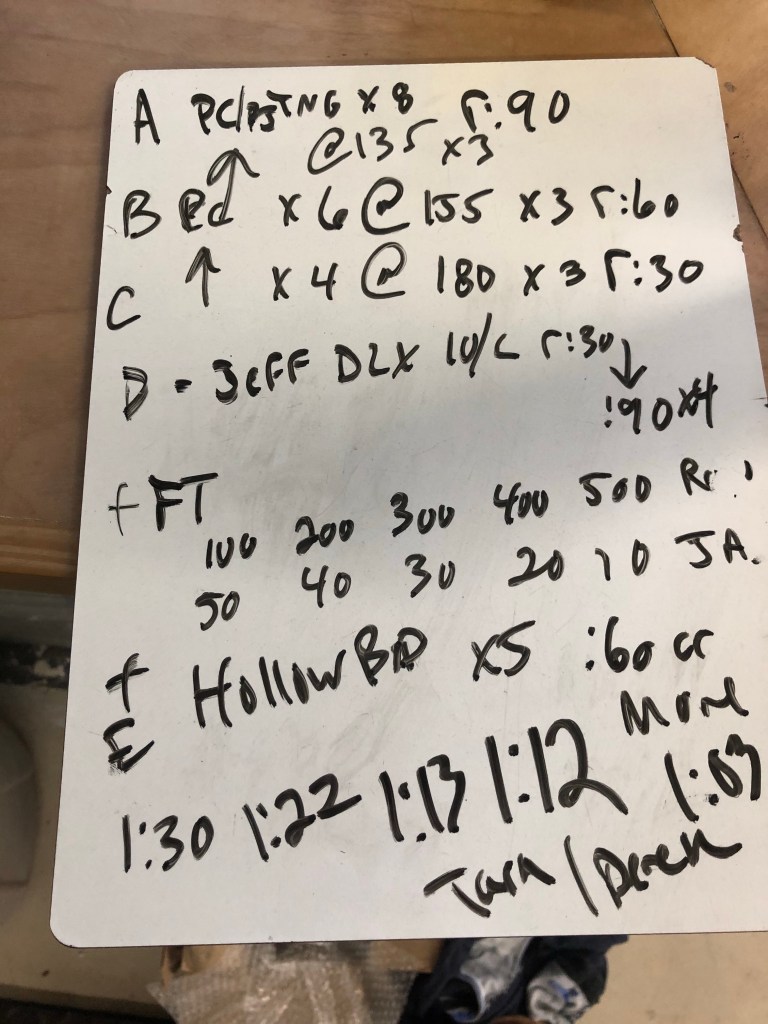 A PC/PJ TNG X 8 r:90
@135 x3
B x 6 @ 155 x 3 r:60
C ↑ x 4 @ 180 x 3 r:30
D - Jeff DLX 10/L r:30
↓
:90 x4
+ FT
100 200 300 400 500
50 40 30 20 10 JA.
+ Hollow x5 :60 or
E More
1:30 1:22 1:13 1:12 1:03
Tara / Derek